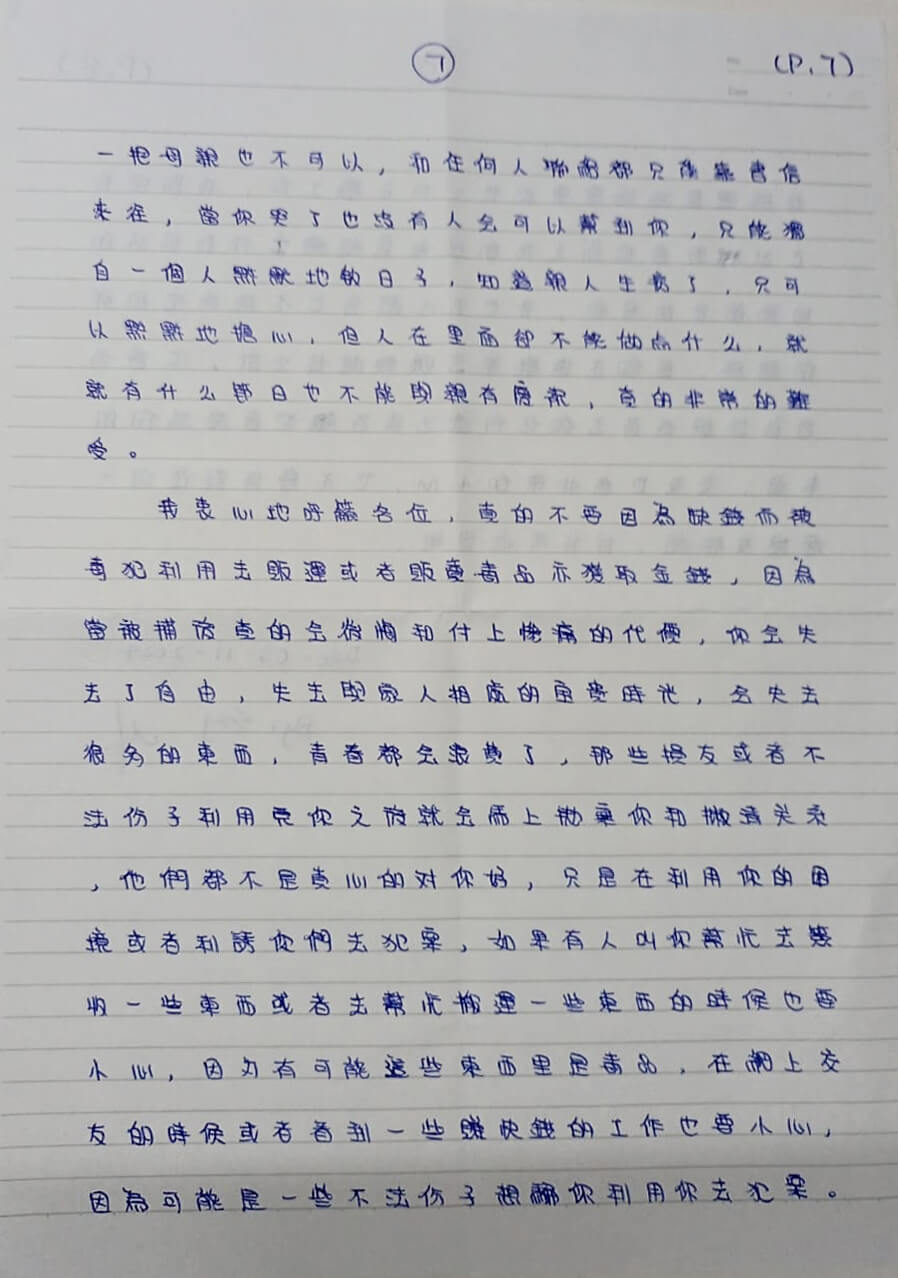 ⑦ (P.7)
一抱母親也不可以，和任何人聯絡都只能靠書信
來往，當你哭了也沒有人会可以幫到你，只能獨
自一個人默默地飲日子，知道親人生病了，只可
以默默地擔心，但人在里面卻不能做点什么，就
就有什么節日也不能與親有慶祝，真的非常的難
受。
我衷心地呼籲各位，真的不要因為缺錢而被
毒犯利用去販運或者販賣毒品示獲取金錢，因為
當被捕后真的会後悔和付上慘痛的代價，你会失
去了自由，失去與家人相處的寶貴時光，会失去
很多的東西，青春都会浪費了，那些損友或者不
法份子利用完你之后就会馬上拋棄你和撇清关系
，他們都不是真心的对你好，只是在利用你的困
境或者利誘你們去犯罪，如果有人叫你幫忙去簽
收一些東西或者去幫忙搬運一些東西的時候也要
小心，因为有可能這些東西里是毒品，在網上交
友的時候或者看到一些賺快錢的工作也要小心，
因為可能是一些不法份子想騙你利用你去犯罪。